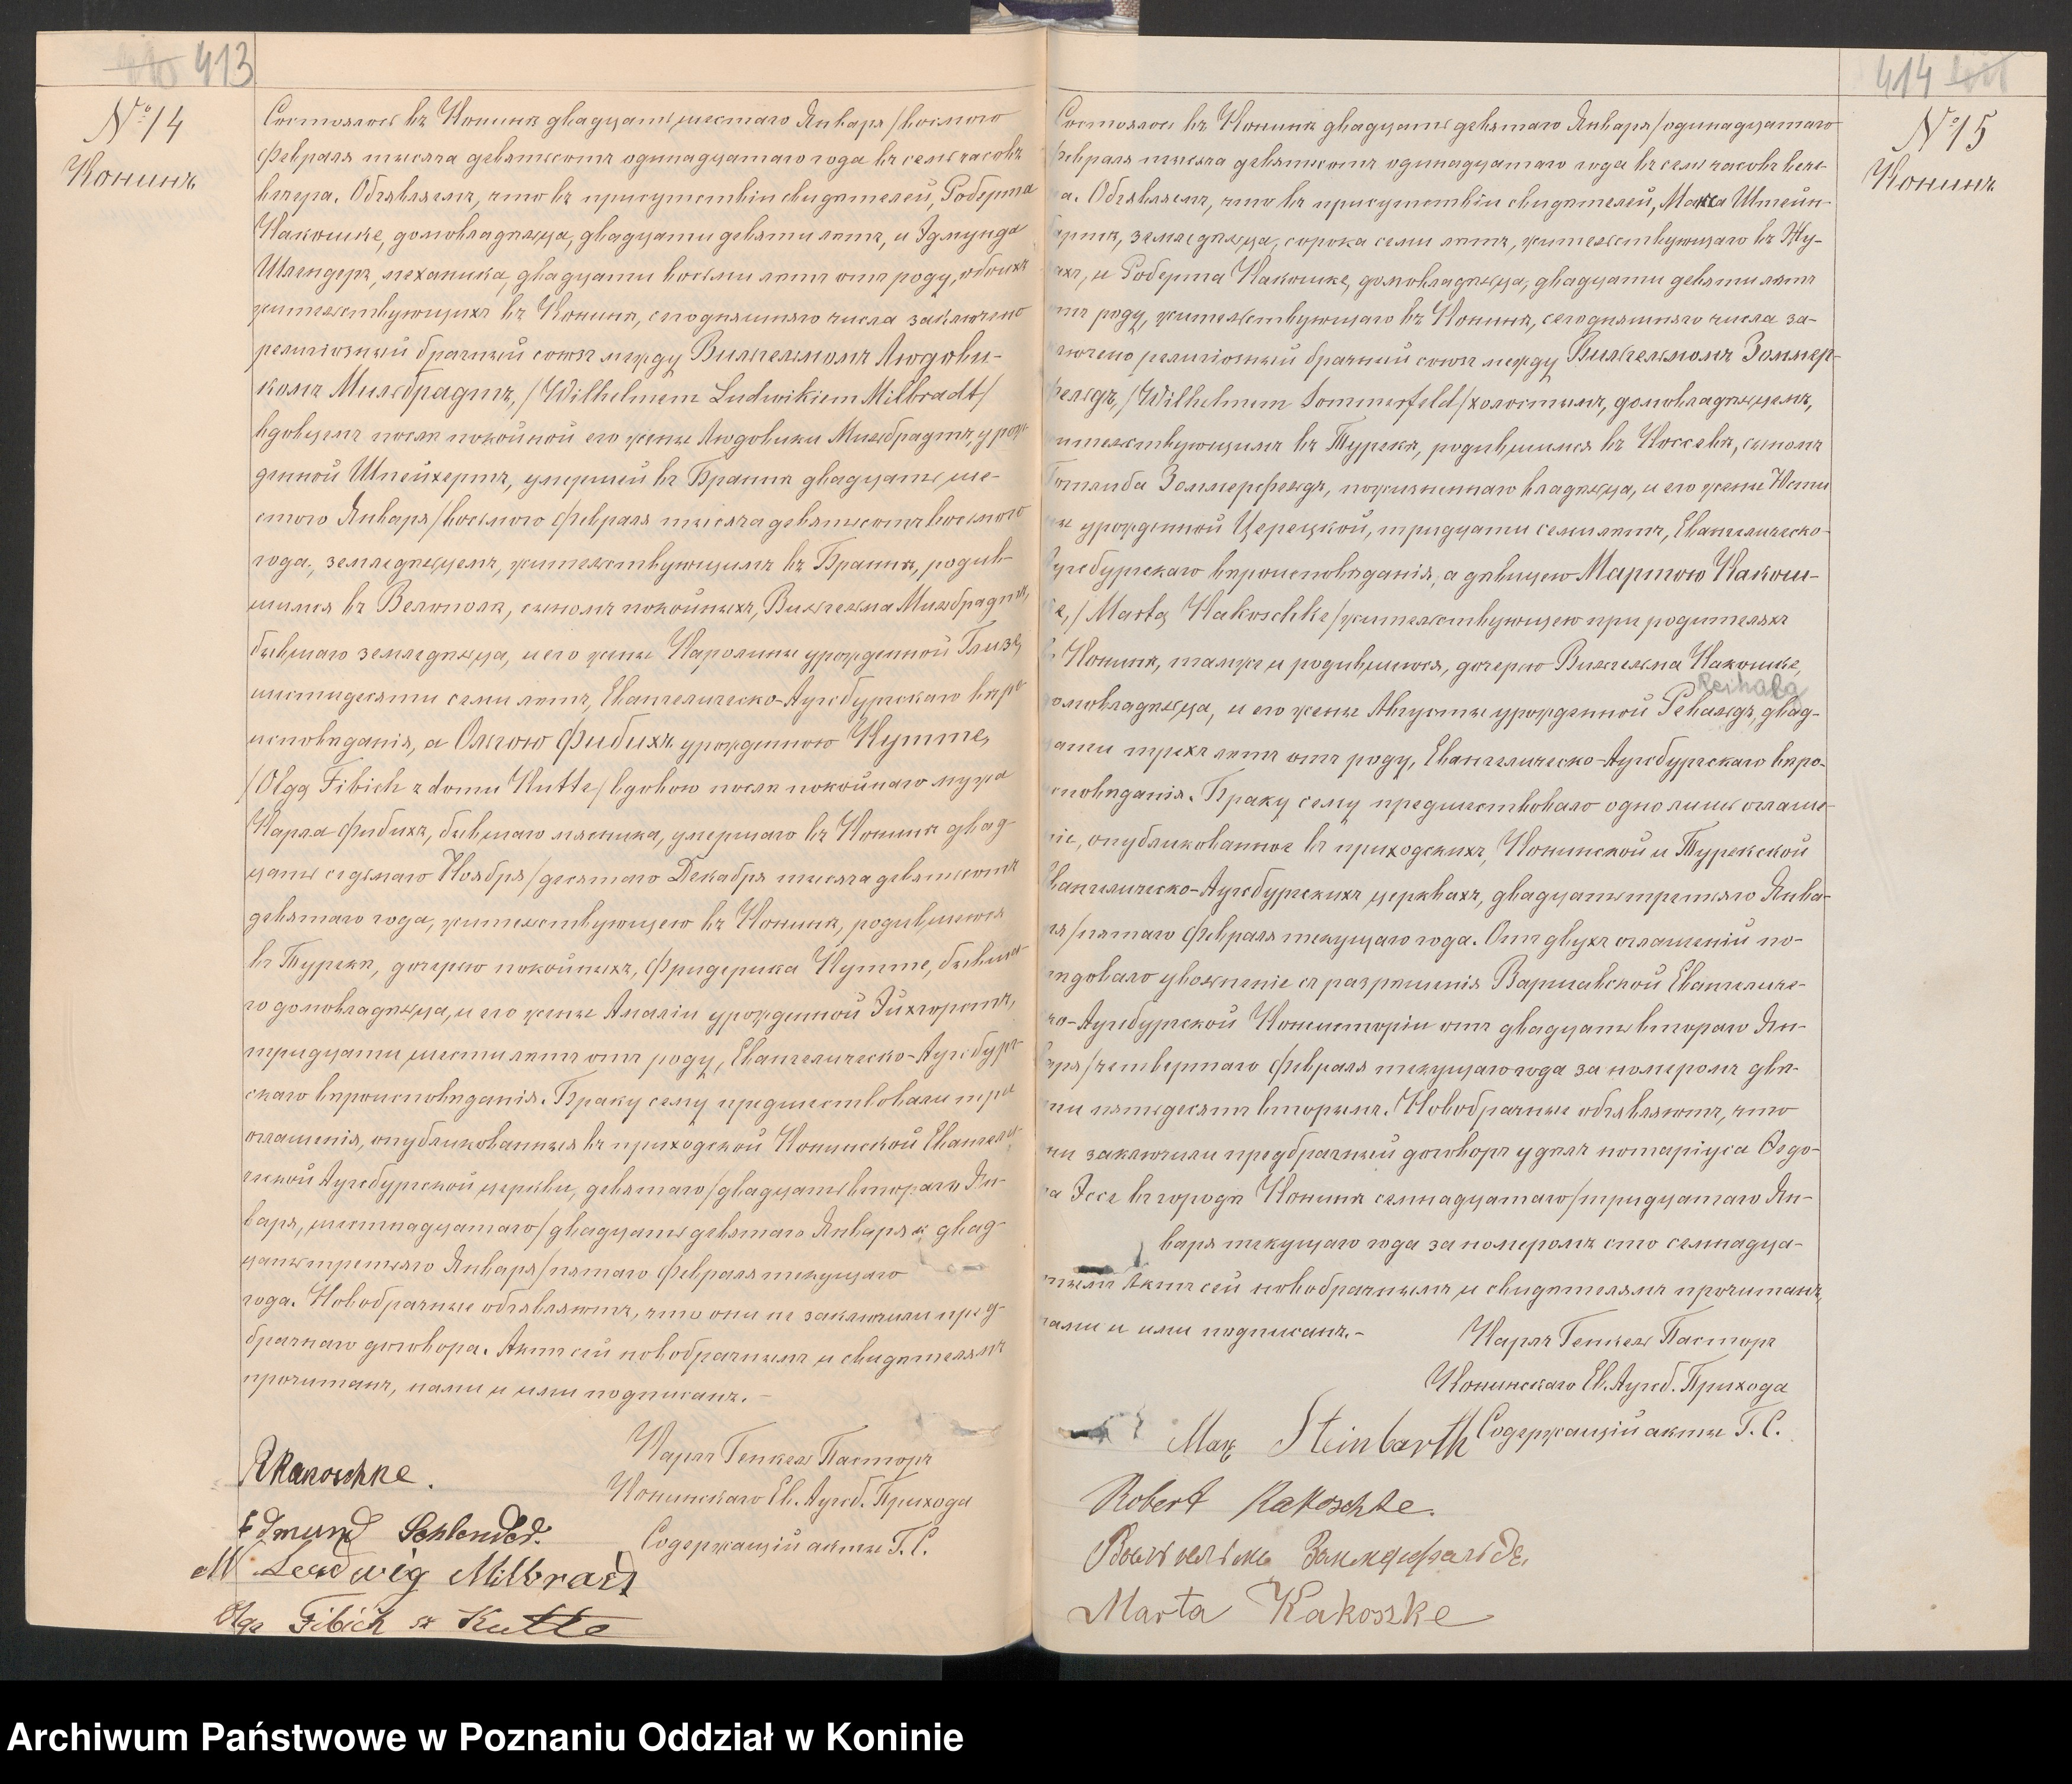 413
№ 14
Конинъ
Состоялось въ Конинѣ двадцать шестаго Января /восьмого
Февраля тысяча девятьсотъ одинадцатаго года въ семь часовъ
вечера. Объявляемъ, что въ присутствіи свидѣтелей, Роберта
Какошке, домовладѣльца, двадцати девяти лѣтъ, и Эдмунда
Шлендеръ, механика, двадцати восьми лѣтъ отъ роду, обоихъ
жительствующихъ въ Конинѣ, сегодняшняго числа заключено
религіозный брачный союзъ между Вильгельмомъ Людови-
комъ Мильбрадтъ, /Wilhelmem Ludwikiem Milbradt/
вдовцемъ послѣ покойной его жены Людовики Мильбрадтъ, урож-
денной Шпейхертъ, умершей въ Брантѣ двадцать ше-
стого Января/восьмого Февраля тысяча девятьсотъ восьмого
года, земледѣльцемъ, жительствующимъ въ Брантѣ, родив-
шимся въ Велополѣ, сыномъ покойныхъ, Вильгельма Мильбрадтъ,
бывшаго земледѣльца, и его жены Каролины урожденной Глизе,
шестидесяти семи лѣтъ, Евангелическо-Аугсбургскаго вѣро-
исповѣданія, а Ольгою Фибихъ урожденною Кутте,
/Olgą Fibich z domu Kutte/ вдовою послѣ покойнаго мужа
Карла Фибихъ, бывшаго мясника, умершаго въ Конинѣ двад-
цать седьмаго Ноября/десятаго Декабря тысяча девятьсотъ
девятаго года, жительствующею въ Конинѣ, родившеюся
въ Турекѣ, дочерью покойныхъ, Фридерика Кутте, бывша-
го домовладѣльца, и его жены Амаліи урожденной Эйхгорстъ,
тридцати шести лѣтъ отъ роду, Евангелическо-Аугсбург-
скаго вѣроисповѣданія. Браку сему предшествовали три
оглашенія, опубликованныя въ приходской Конинской Евангели-
ческой Аугсбургской церкви, девятаго/двадцать втораго Ян-
варя, шестнадцатаго/двадцать девятаго Января и двад-
цать третьяго Января/пятаго Февраля текущаго
года. Новобрачные объявляютъ, что они не заключили пред-
брачнаго договора. Актъ сей новобрачнымъ и свидѣтелямъ
прочитанъ, нами и ими подписанъ.-
Карлъ Генкель Пасторъ
Конинскаго Ев. Аугсб. Прихода
Содержащій акты Г. С.
RKakoschke.
Edmund Schlender.
W Ludwig Milbradt
Olga Fibich z Kutte
414
№ 15
Конинъ
Состоялось въ Конинѣ двадцать девятаго Января/одинадцатаго
Февраля тысяча девятьсотъ одинадцатаго года въ семь часовъ вече-
а. Объявляемъ, что въ присутствіи свидѣтелей, Макса Штейн-
бартъ, земледѣльца, сорока семи лѣтъ, жительствующаго въ Жу-
ахъ, и Роберта Какошке, домовладѣльца, двадцати девяти лѣтъ
отъ роду, жительствующаго въ Конинѣ, сегодняшняго числа за-
ключено религіозный брачный союзъ между Вильгельмомъ Зоммер-
фельдъ, /Wilhelmem Sommerfeld/ холостымъ, домовладѣльцемъ,
жительствующимъ въ Турекѣ, родившимся въ Косcевѣ, сыномъ
Готлиба Зоммерфельдъ, пожизненнаго владѣльца, и его жены Юсти
ны урожденной Церецкой, тридцати семи лѣтъ, Евангелическо-
Аугсбургскаго вѣроисповѣданія, а дѣвицею Мартою Какош-
ке, /Martą Kakoschke/ жительствующею при родителяхъ
въ Конинѣ, тамже и родившеюся, дочерью Вильгельма Какошке,
Reihald
домовладѣльца, и его жены Августы урожденнойРевальдъ, двад-
цати трехъ лѣтъ отъ роду, Евангелическо-Аугсбургскаго вѣро-
исповѣданія. Браку сему предшествовало одно лишь оглаше-
ніе, опубликованное въ приходскихъ, Конинской и Турекской
Евангелическо-Аугсбургскихъ церквахъ, двадцать третьяго Янва-
ря/пятаго Февраля текущаго года. Отъ двухъ оглашеній по-
слѣдовало увольненіе съ разрѣшенія Варшавской Евангеличе-
ско-Аугсбургской Консисторіи отъ двадцать втораго Ян-
варя/четвертаго Февраля текущаго года за номеромъ двѣ-
сти пятьдесятъ вторымъ. Новобрачные объявляютъ, что
они заключили предбрачный договоръ у дѣлъ нотаріуса Ѳедо-
ра Эссе въ городѣ Конинѣ семнадцатаго/тридцатаго Ян-
варя текущаго года за номеромъ сто семнадца-
тымъ Актъ сей новобрачнымъ и свидѣтелямъ прочитанъ,
нами и ими подписанъ.-
Карлъ Генкель Пасторъ
Конинскаго Ев. Аугсб. Прихода
Содержащій акты Г. С.
Max Steinbarth
Robert Kakoschke.
Вильгельмъ Зоммерфельдъ
Marta Kakoszke
Archiwum Państwowe w Poznaniu Oddział w Koninie